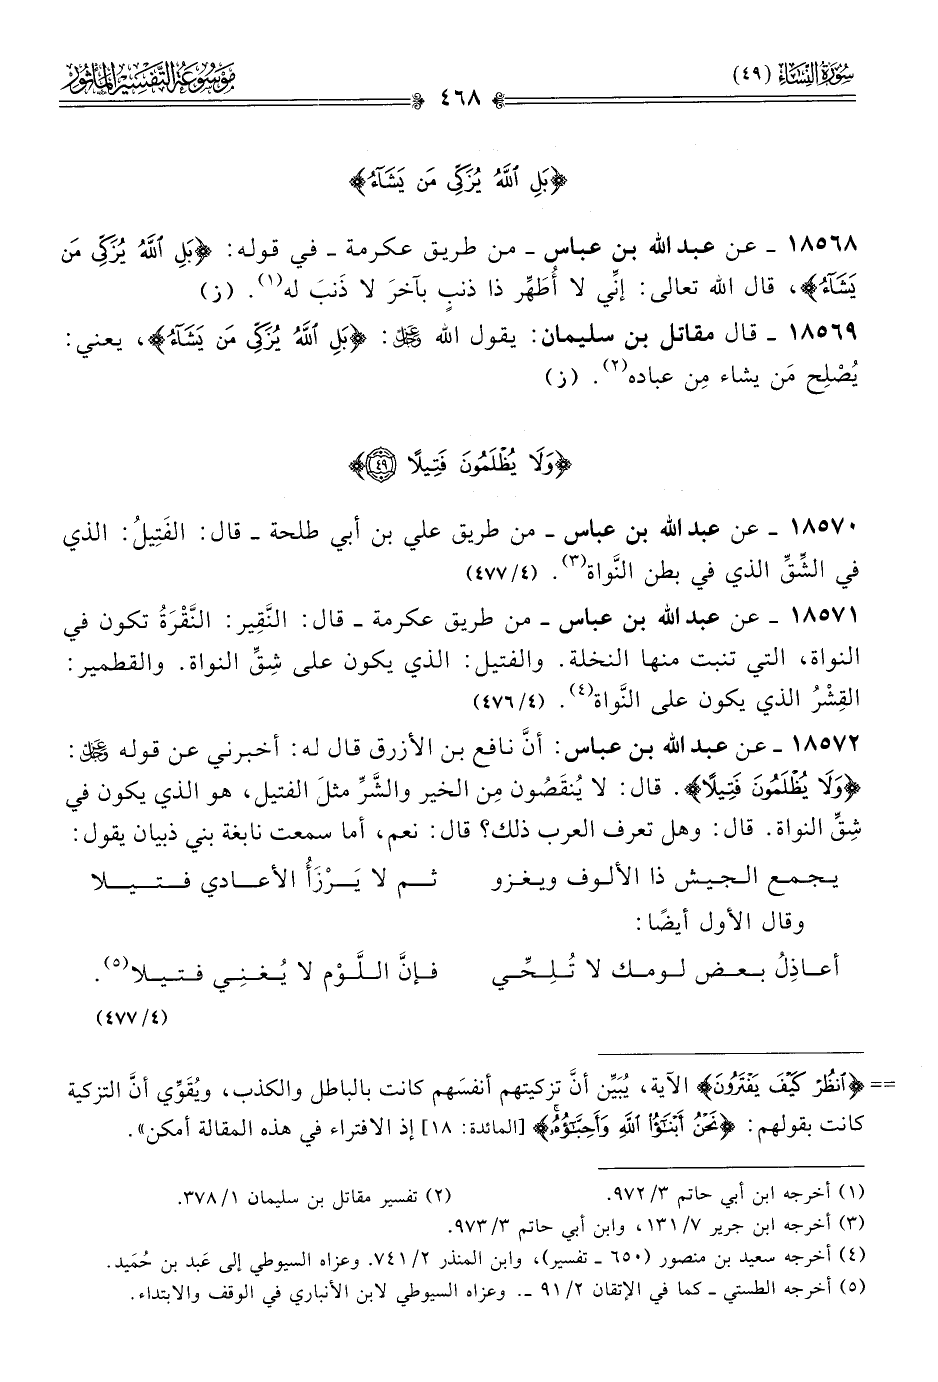 سُورَةُ النِّسَاءِ (٤٩)
٤٦٨
مَوْسُوعَة التَّفْسِيْر المَأْثُور
﴿بَلِ ٱللَّهُ يُزَكِّى مَن يَشَآءُ﴾
١٨٥٦٨ ـ عن عبد الله بن عباس ـ من طريق عكرمة ـ في قوله: ﴿بَلِ ٱللَّهُ يُزَكِّى مَن
يَشَآءُ﴾، قال الله تعالى: إنِّي لا أُطَهِّر ذا ذنبٍ بآخرَ لا ذَنبَ له(١). (ز)
١٨٥٦٩ ـ قال مقاتل بن سليمان: يقول الله ﷿: ﴿بَلِ ٱللَّهُ يُزَكِّى مَن يَشَآءُ﴾، يعني:
يُصْلِح مَن يشاء مِن عباده(٢). (ز)
﴿وَلَا يُظْلَمُونَ فَتِيلًا ٤٩﴾
١٨٥٧٠ ـ عن عبد الله بن عباس ـ من طريق علي بن أبي طلحة ـ قال: الفَتِيلُ: الذي
في الشِّقِّ الذي في بطن النَّواة(٣). (٤/٤٧٧)
١٨٥٧١ ـ عن عبد الله بن عباس ـ من طريق عكرمة ـ قال: النَّقِير: النَّقْرَةُ تكون في
النواة، التي تنبت منها النخلة. والفتيل: الذي يكون على شِقِّ النواة. والقطمير:
القِشْرُ الذي يكون على النَّواة(٤). (٤/٤٧٦)
١٨٥٧٢ ـ عن عبد الله بن عباس: أنَّ نافع بن الأزرق قال له: أخبرني عن قوله ﷿:
﴿وَلَا يُظْلَمُونَ فَتِيلًا﴾. قال: لا يُنقَصُون مِن الخير والشَّرِّ مثلَ الفتيل، هو الذي يكون في
شِقِّ النواة. قال: وهل تعرف العرب ذلك؟ قال: نعم، أما سمعت نابغة بني ذبيان يقول:
يجمع الجيش ذا الألوف ويغزو ثم لا يَرْزَأُ الأعادي فتيلا
وقال الأول أيضًا:
أعاذِلُ بعض لومك لا تُلِحِّي فإنَّ اللَّوْم لا يُغنِي فتيلا(٥).
(٤/٤٧٧)
== ﴿ٱنظُرْ كَيْفَ يَفْتَرُونَ﴾ الآية، يُبَيِّن أنَّ تزكيتهم أنفسَهم كانت بالباطل والكذب، ويُقَوِّي أنَّ التزكية
كانت بقولهم: ﴿نَحْنُ أَبْنَٰٓؤُا۟ ٱللَّهِ وَأَحِبَّٰٓؤُهُۥ﴾ [المائدة: ١٨] إذ الافتراء في هذه المقالة أمكن».
(١) أخرجه ابن أبي حاتم ٣/٩٧٢. (٢) تفسير مقاتل بن سليمان ١/٣٧٨.
(٣) أخرجه ابن جرير ٧/١٣١، وابن أبي حاتم ٣/٩٧٣.
(٤) أخرجه سعيد بن منصور (٦٥٠ ـ تفسير)، وابن المنذر ٢/٧٤١. وعزاه السيوطي إلى عَبد بن حُمَيد.
(٥) أخرجه الطستي ـ كما في الإتقان ٢/٩١ ـ. وعزاه السيوطي لابن الأنباري في الوقف والابتداء.